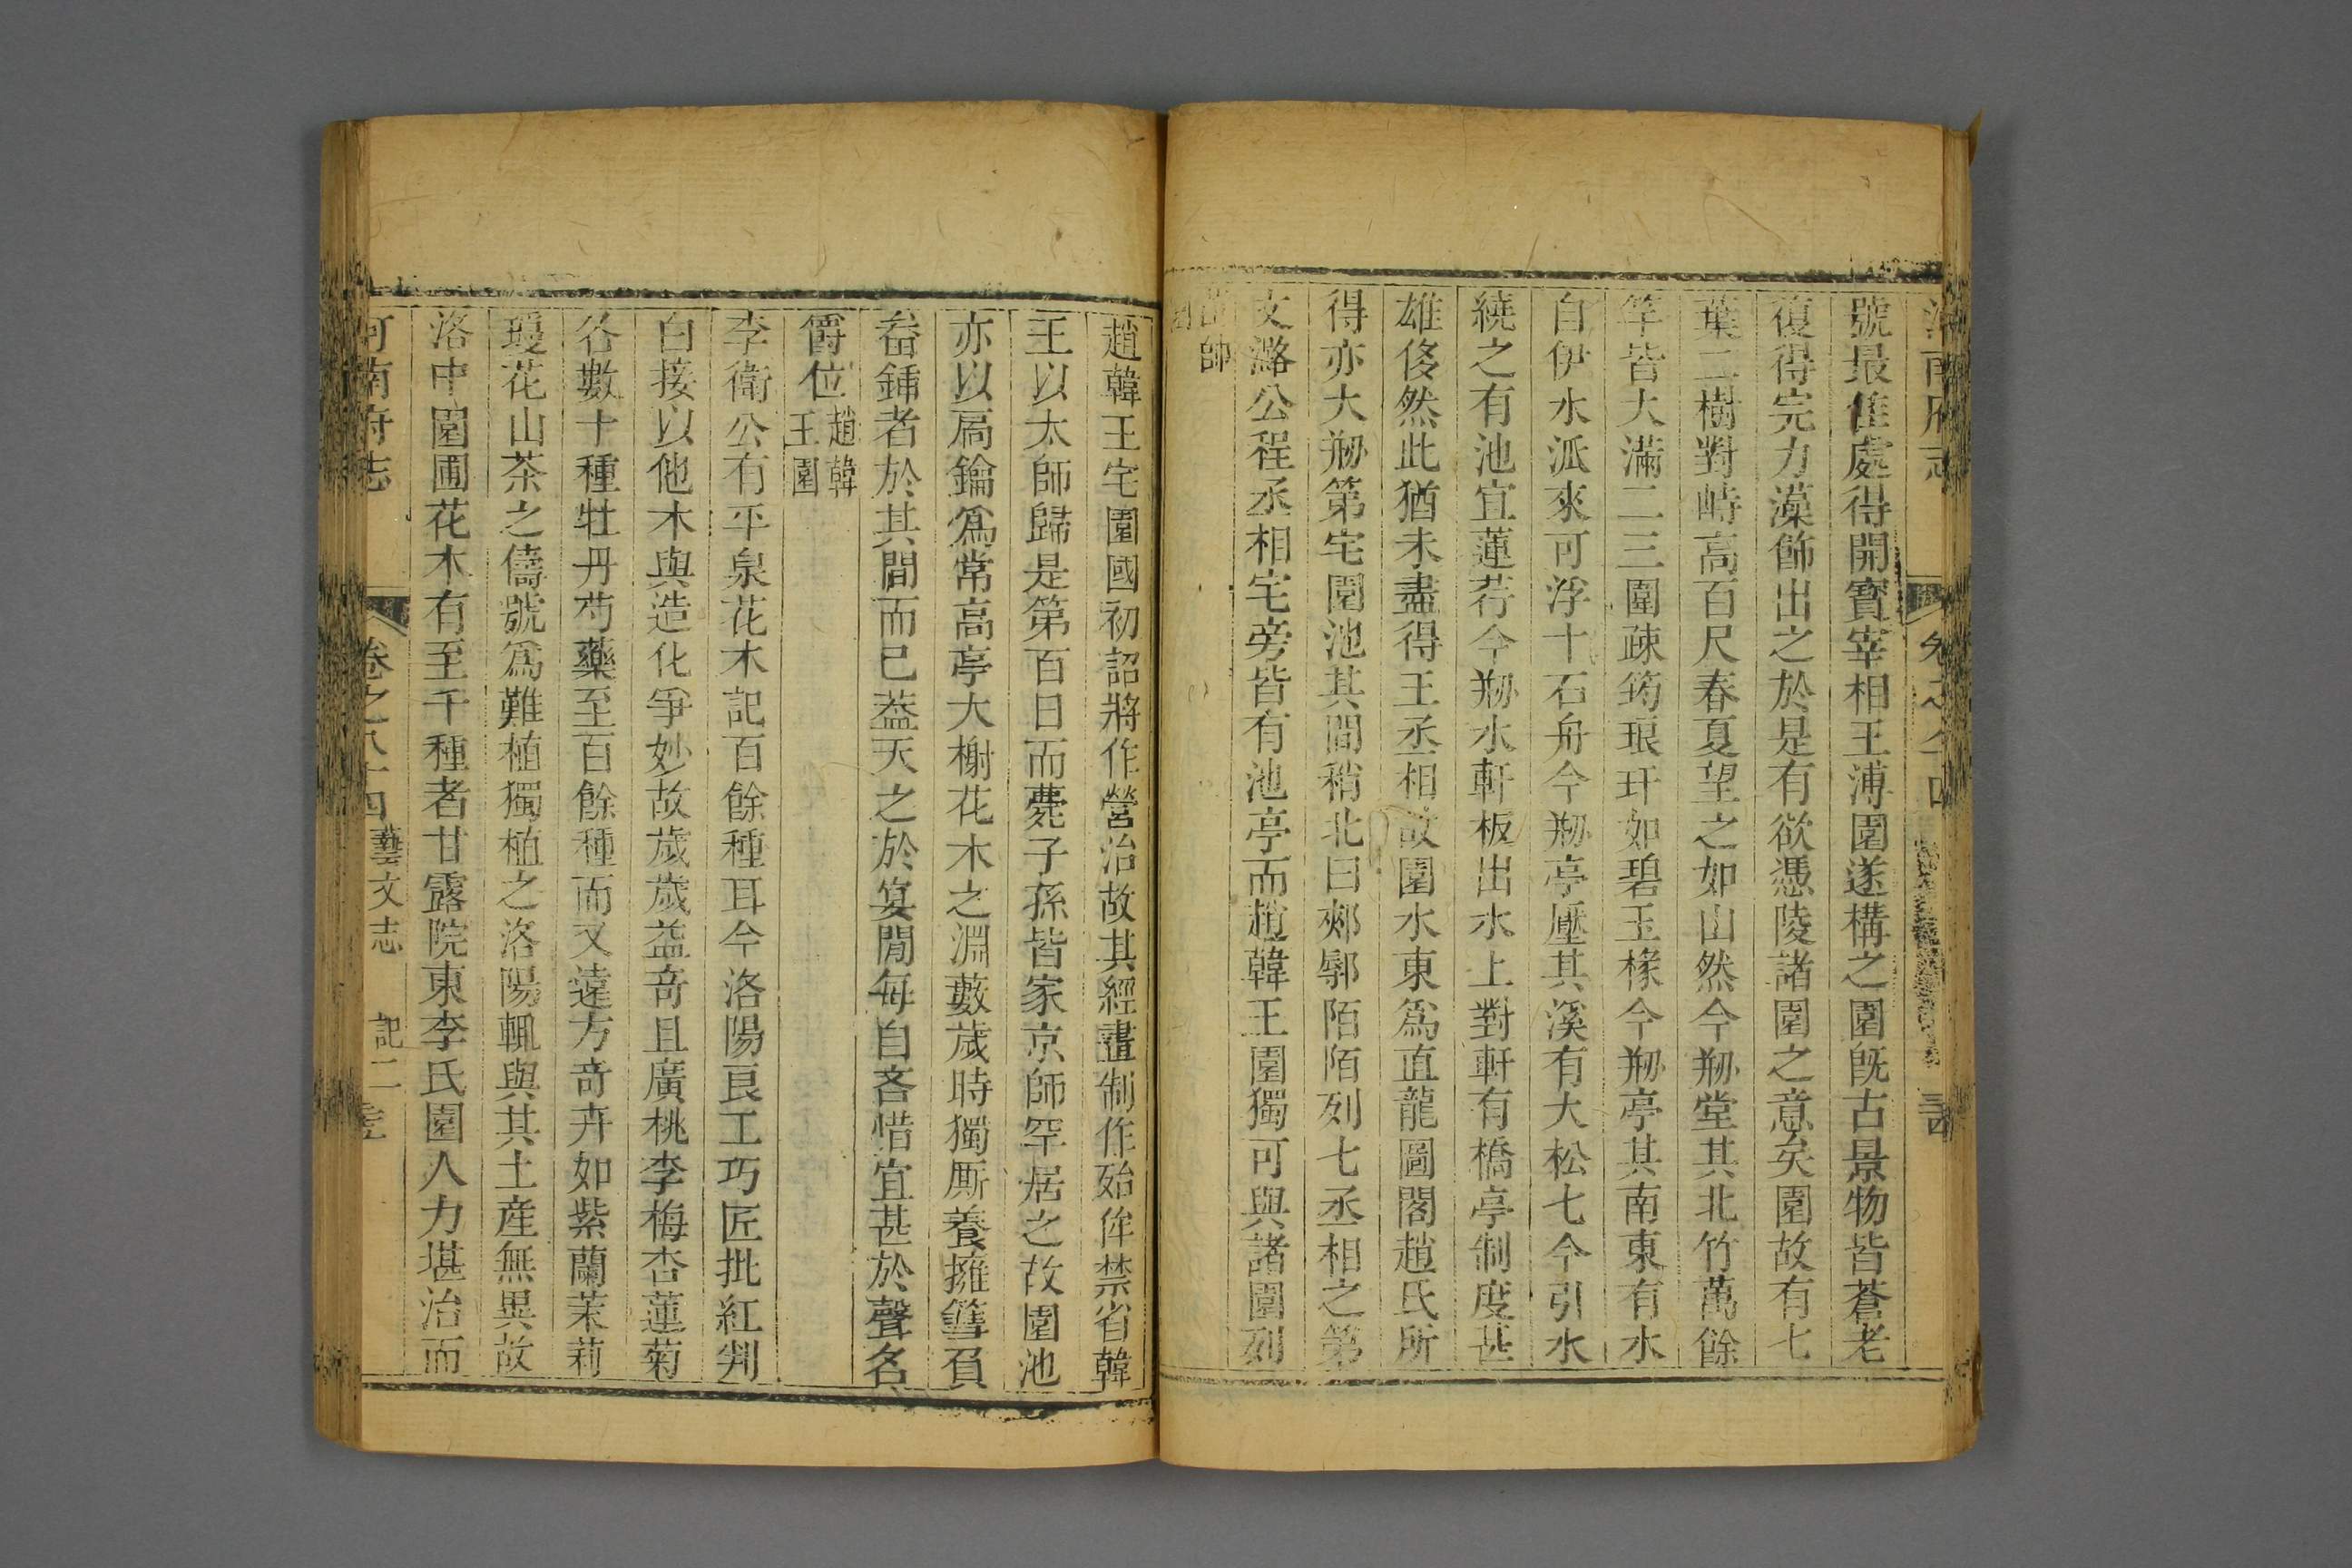 河南府志 卷之八十四
號最佳處得開寶宰相王溥園遂構之園旣古景物皆蒼老
復得完力藻飾出之於是有欲憑陵諸園之意矣園故有七
葉二樹對峙高百尺春夏望之如山然今剏堂其北竹萬餘
竿皆大滿二三圍疎筠琅玕如碧玉椽今剏亭其南東有水
自伊水派來可浮十石舟今剏亭壓其溪有大松七今引水
繞之有池宜蓮荇今剏水軒板出水上對軒有橋亭制度甚
雄侈然此猶未盡得王丞相故園水東爲直龍圖閣趙氏所
得亦大剏第宅園池其間稍北曰郟鄏陌陌列七丞相之第
文潞公程丞相宅旁皆有池亭而趙韓王園獨可與諸園列
趙韓王宅園國初詔將作營治故其經畫制作殆侔禁省韓
王以太師歸是第百日而薨子孫皆家京師罕居之故園池
亦以扃鑰爲常高亭大榭花木之淵藪歲時獨厮養擁篲負
畚鍤者於其間而已蓋天之於宴閒每自吝惜宜甚於聲名
爵位趙韓王園
李衛公有平泉花木記百餘種耳今洛陽良工巧匠批紅判
白接以他木與造化爭妙故歲歲益奇且廣桃李梅杏蓮菊
各數十種牡丹芍藥至百餘種而又遠方奇卉如紫蘭茉莉
瓊花山茶之儔號爲難植獨植之洛陽輒與其土産無異故
洛中園圃花木有至千種者甘露院東李氏園人力堪治而
河南府志 卷之八十四 藝文志 記二